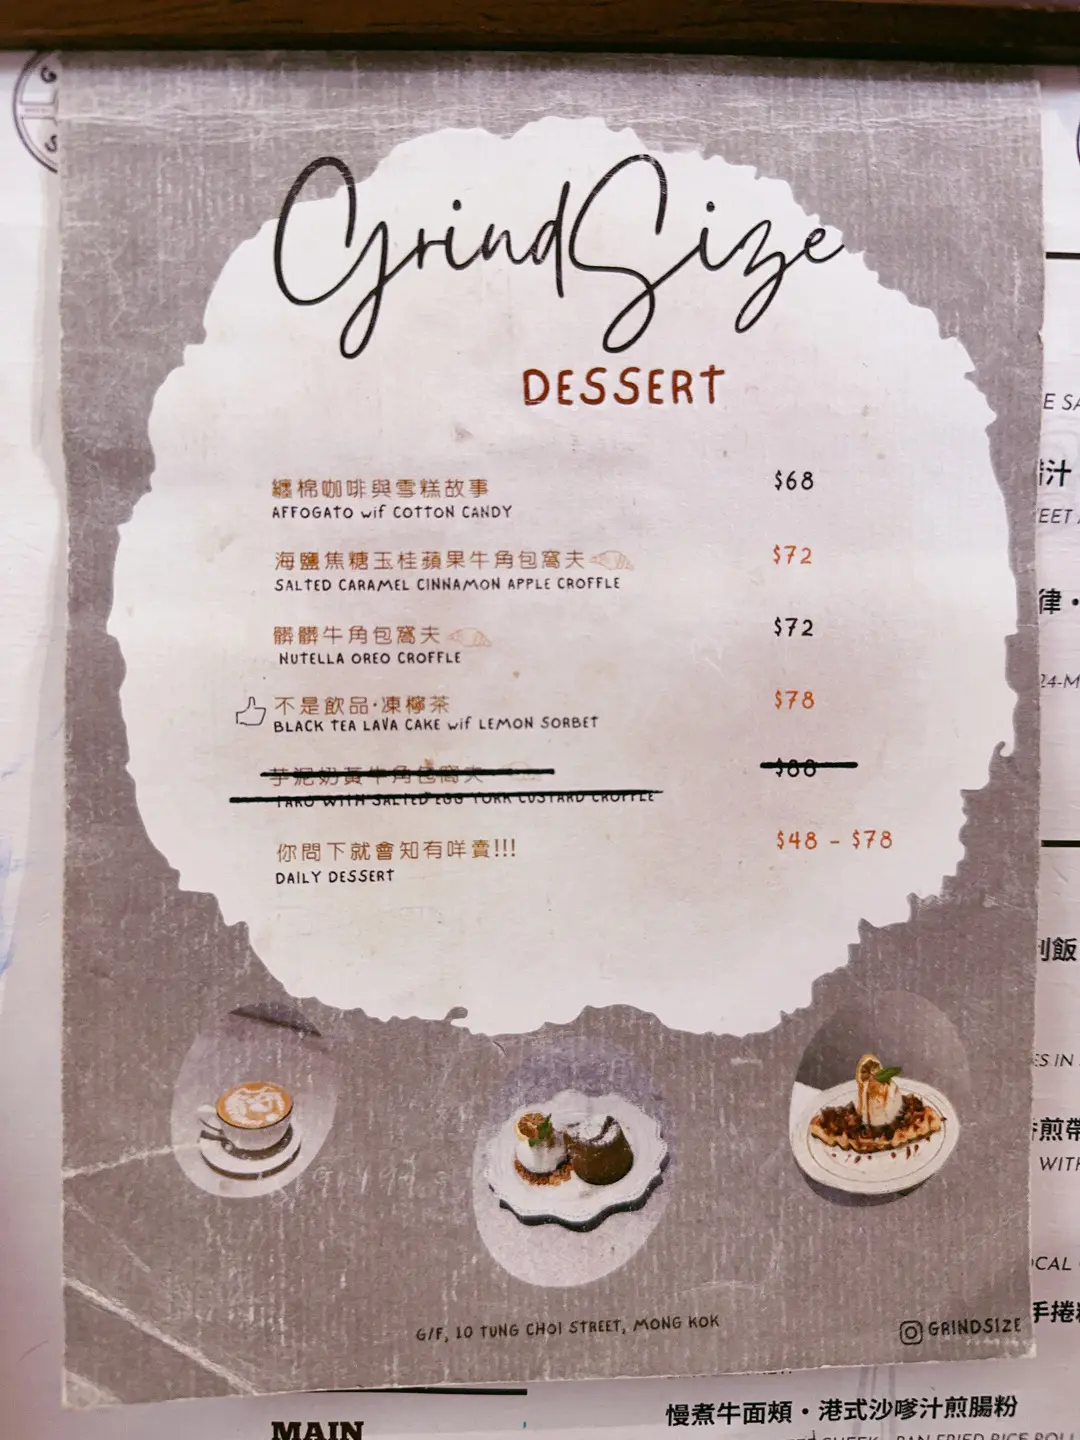 GrindSize
DESSERT
纏棉咖啡與雪糕故事 $68
AFFOGATO wif COTTON CANDY
海鹽焦糖玉桂蘋果牛角包窩夫 $72
SALTED CARAMEL CINNAMON APPLE CROFFLE
髒髒牛角包窩夫 $72
NUTELLA OREO CROFFLE
不是飲品·凍檸茶 $78
BLACK TEA LAVA CAKE wif LEMON SORBET
芋泥奶黃牛角包窩夫 $88
TARO WITH SALTED EGG YORK CUSTARD CROFFLE
你問下就會知有咩賣!!! $48 - $78
DAILY DESSERT
G/F, 10 TUNG CHOI STREET, MONG KOK
GRINDSIZE
MAIN
慢煮牛面頰・港式沙嗲汁煎腸粉
汁
律・
24-M
飯
ES IN
煎帶
WITH
手捲